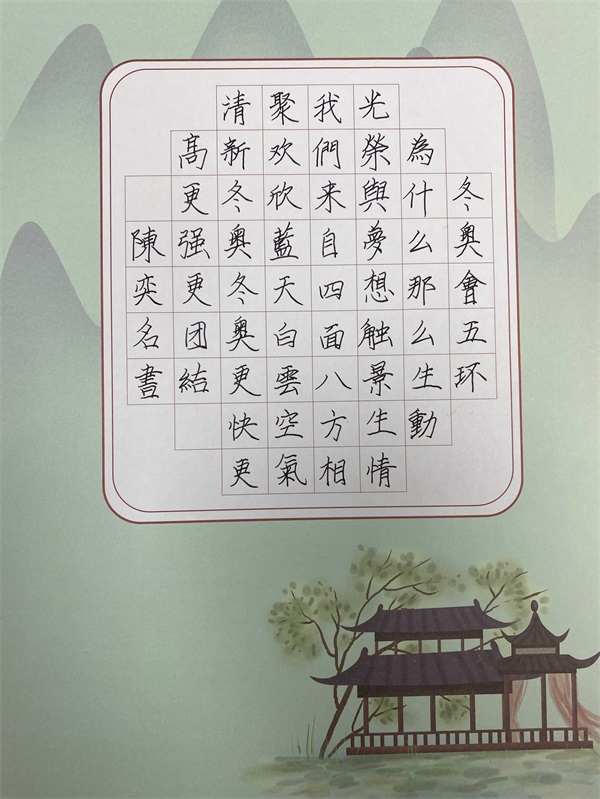 冬奥會五环
為什么那么生動
光榮與夢想触景生情
我們来自四面八方相
聚欢欣藍天白雲空氣
清新冬奥冬奥更快更
髙更强更团結
陳奕名書